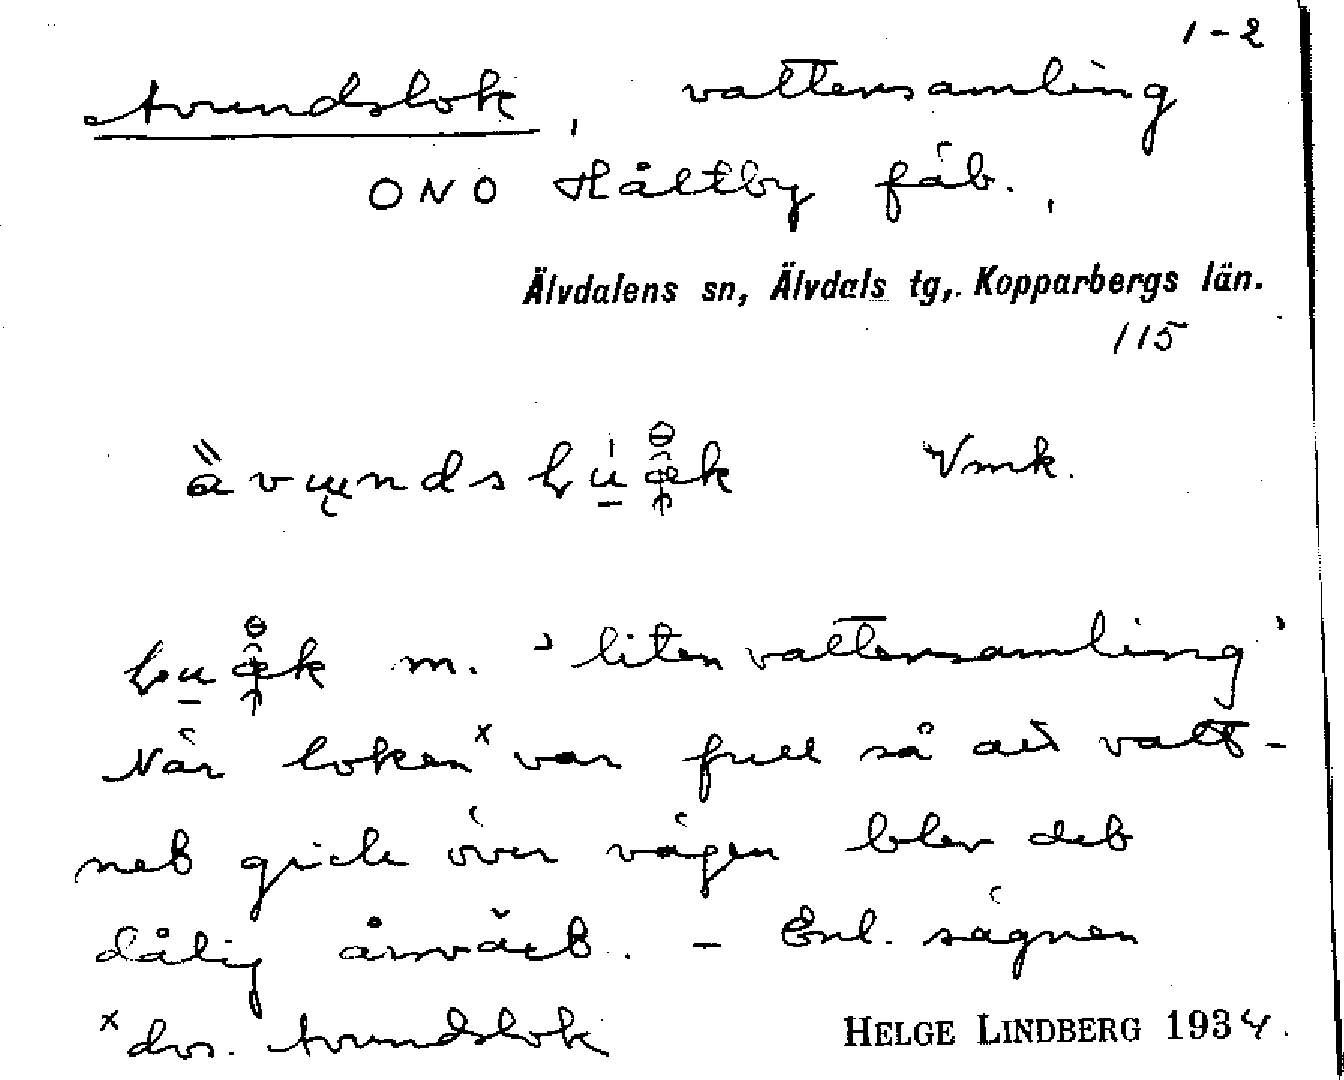 1-2
Avundslok, vattensamling
ONO Håltby fäb.,
Älvdalens sn, Älvdals tg,. Kopparbergs län.
115
Vmk.
m. 'liten vattensamling'
När loken x var full så att vatt-
net gick över vägen blev det
dålig årsväxt. - Enl. sägnen
x dvs. Avundslok
HELGE LINDBERG 1934.